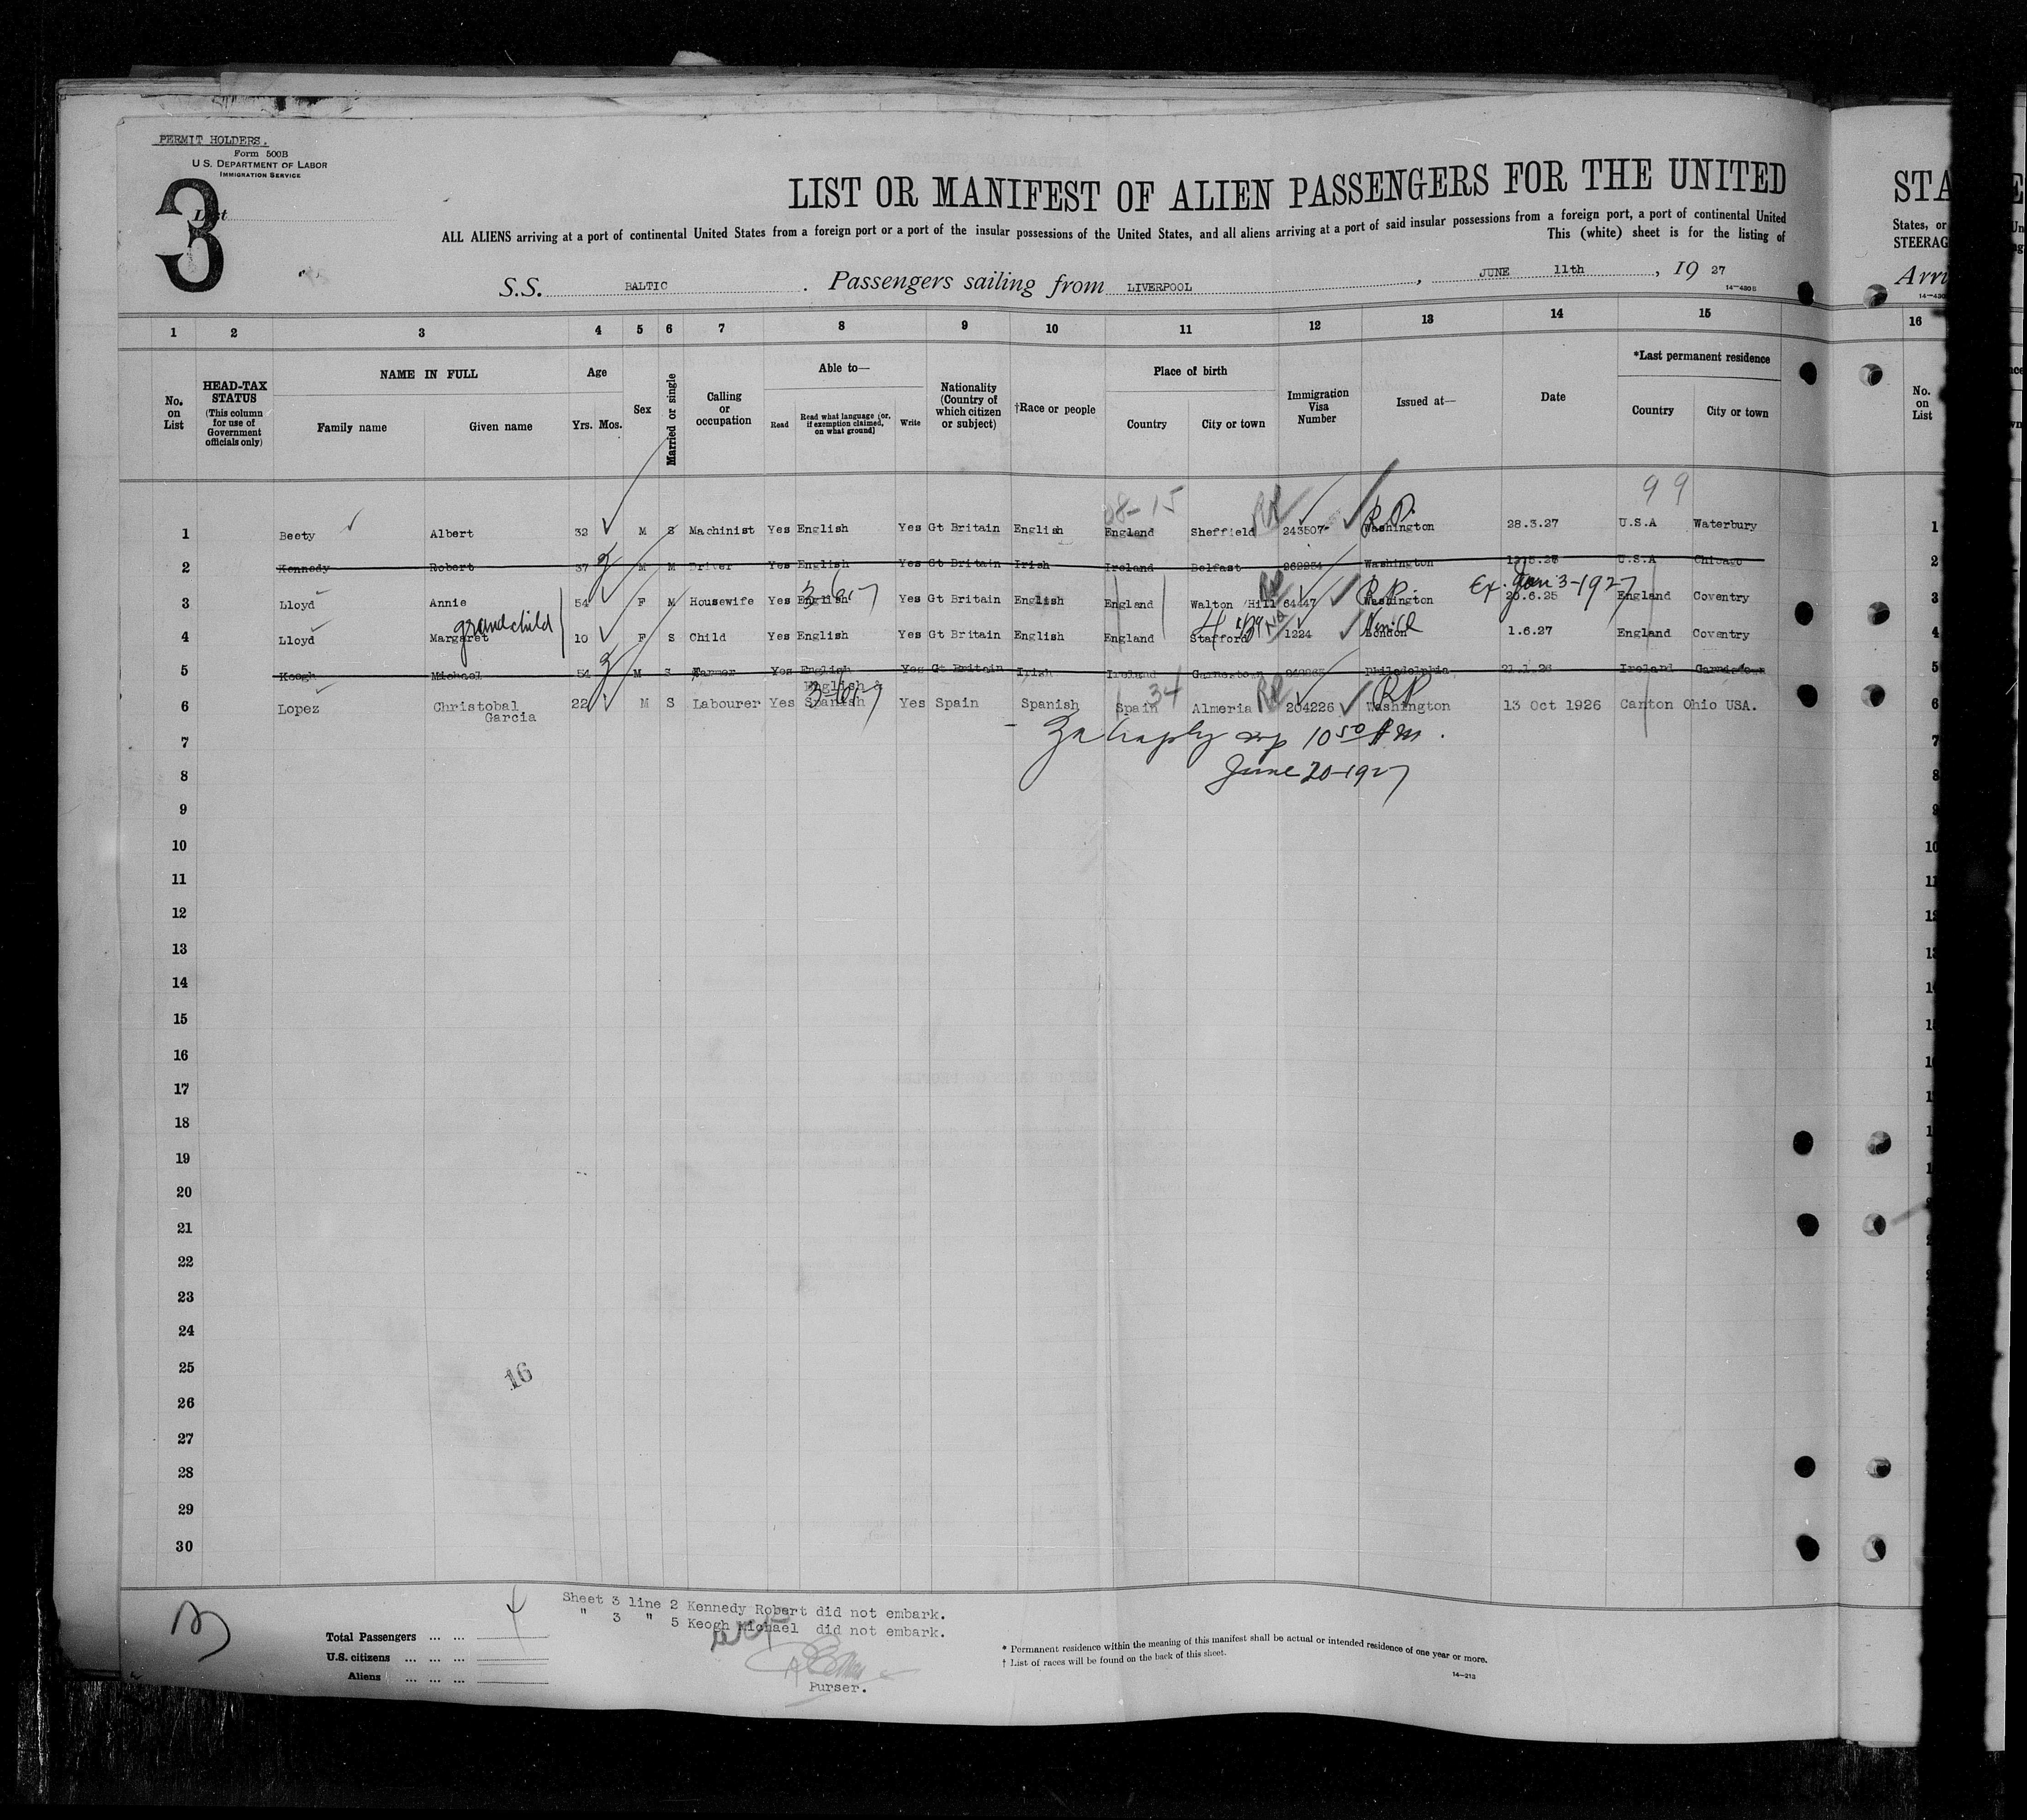 PERMIT HOLDERS.
Form 500B
U S. DEPARTMENT OF LABOR
IMMIGRATION SERVICE
List
3
LIST OR MANIFEST OF ALIEN PASSENGERS FOR THE UNITED
ALL ALIENS arriving at a port of continental United States from a foreign port or a port of the insular possessions of the United States, and all aliens arriving at a port of said insular possessions from a foreign port, a port of continental United
This (white) sheet is for the listing of
S.S. BALTIC . Passengers sailing from LIVERPOOL , JUNE 11th , 19 27
14-430B
STA
States, or
STEERAG
Arri
14-430
1 2 3 4 5 6 7 8 9 10 11 12 13 14 15 16
No. on List
HEAD-TAX STATUS
(This column for use of Government officials only)
NAME IN FULL
Family name Given name
Age
Yrs. Mos.
Sex
Married or single
Calling or occupation
Able to—
Read Read what language (or, if exemption claimed, on what ground) Write
Nationality (Country of which citizen or subject)
†Race or people
Place of birth
Country City or town
Immigration Visa Number
Issued at—
Date
*Last permanent residence
Country City or town
No. on List
08-15 99
1 Beety Albert 32 M S Machinist Yes English Yes Gt Britain English England Sheffield 243507 RP Washington 28.3.27 U.S.A Waterbury 1
2 Kennedy Robert 37 M M Driver Yes English Yes Gt Britain Irish Ireland Belfast Washington U.S.A Chicago 2
Ex. Jan 3-1927
3 Lloyd Annie 54 F M Housewife Yes English Yes Gt Britain English England Walton Hill 64447 RP Washington 20.6.25 England Coventry 3
grandchild
4 Lloyd Margaret 10 F S Child Yes English Yes Gt Britain English England Stafford 1224 London 1.6.27 England Coventry 4
5 Keogh Michael 54 M S Farmer Yes English Yes Gt Britain Irish Ireland Philadelphia 21.1.26 Ireland 5
6 Lopez Christobal Garcia 22 M S Labourer Yes English & Spanish Yes Spain Spanish Spain 34 Almeria 204226 RP Washington 13 Oct 1926 Canton Ohio USA. 6
7 10 50 AM. 7
8 June 20-1927 8
9
10
11
12
13
14
15
16
17
18
19
20
21
22
23
24
25
16
26
27
28
29
30
Sheet 3 line 2 Kennedy Robert did not embark.
" 3 " 5 Keogh Michael did not embark.
Purser.
Total Passengers ... ...
U.S. citizens ... ... ...
Aliens ... ... ...
* Permanent residence within the meaning of this manifest shall be actual or intended residence of one year or more.
† List of races will be found on the back of this sheet.
14-213